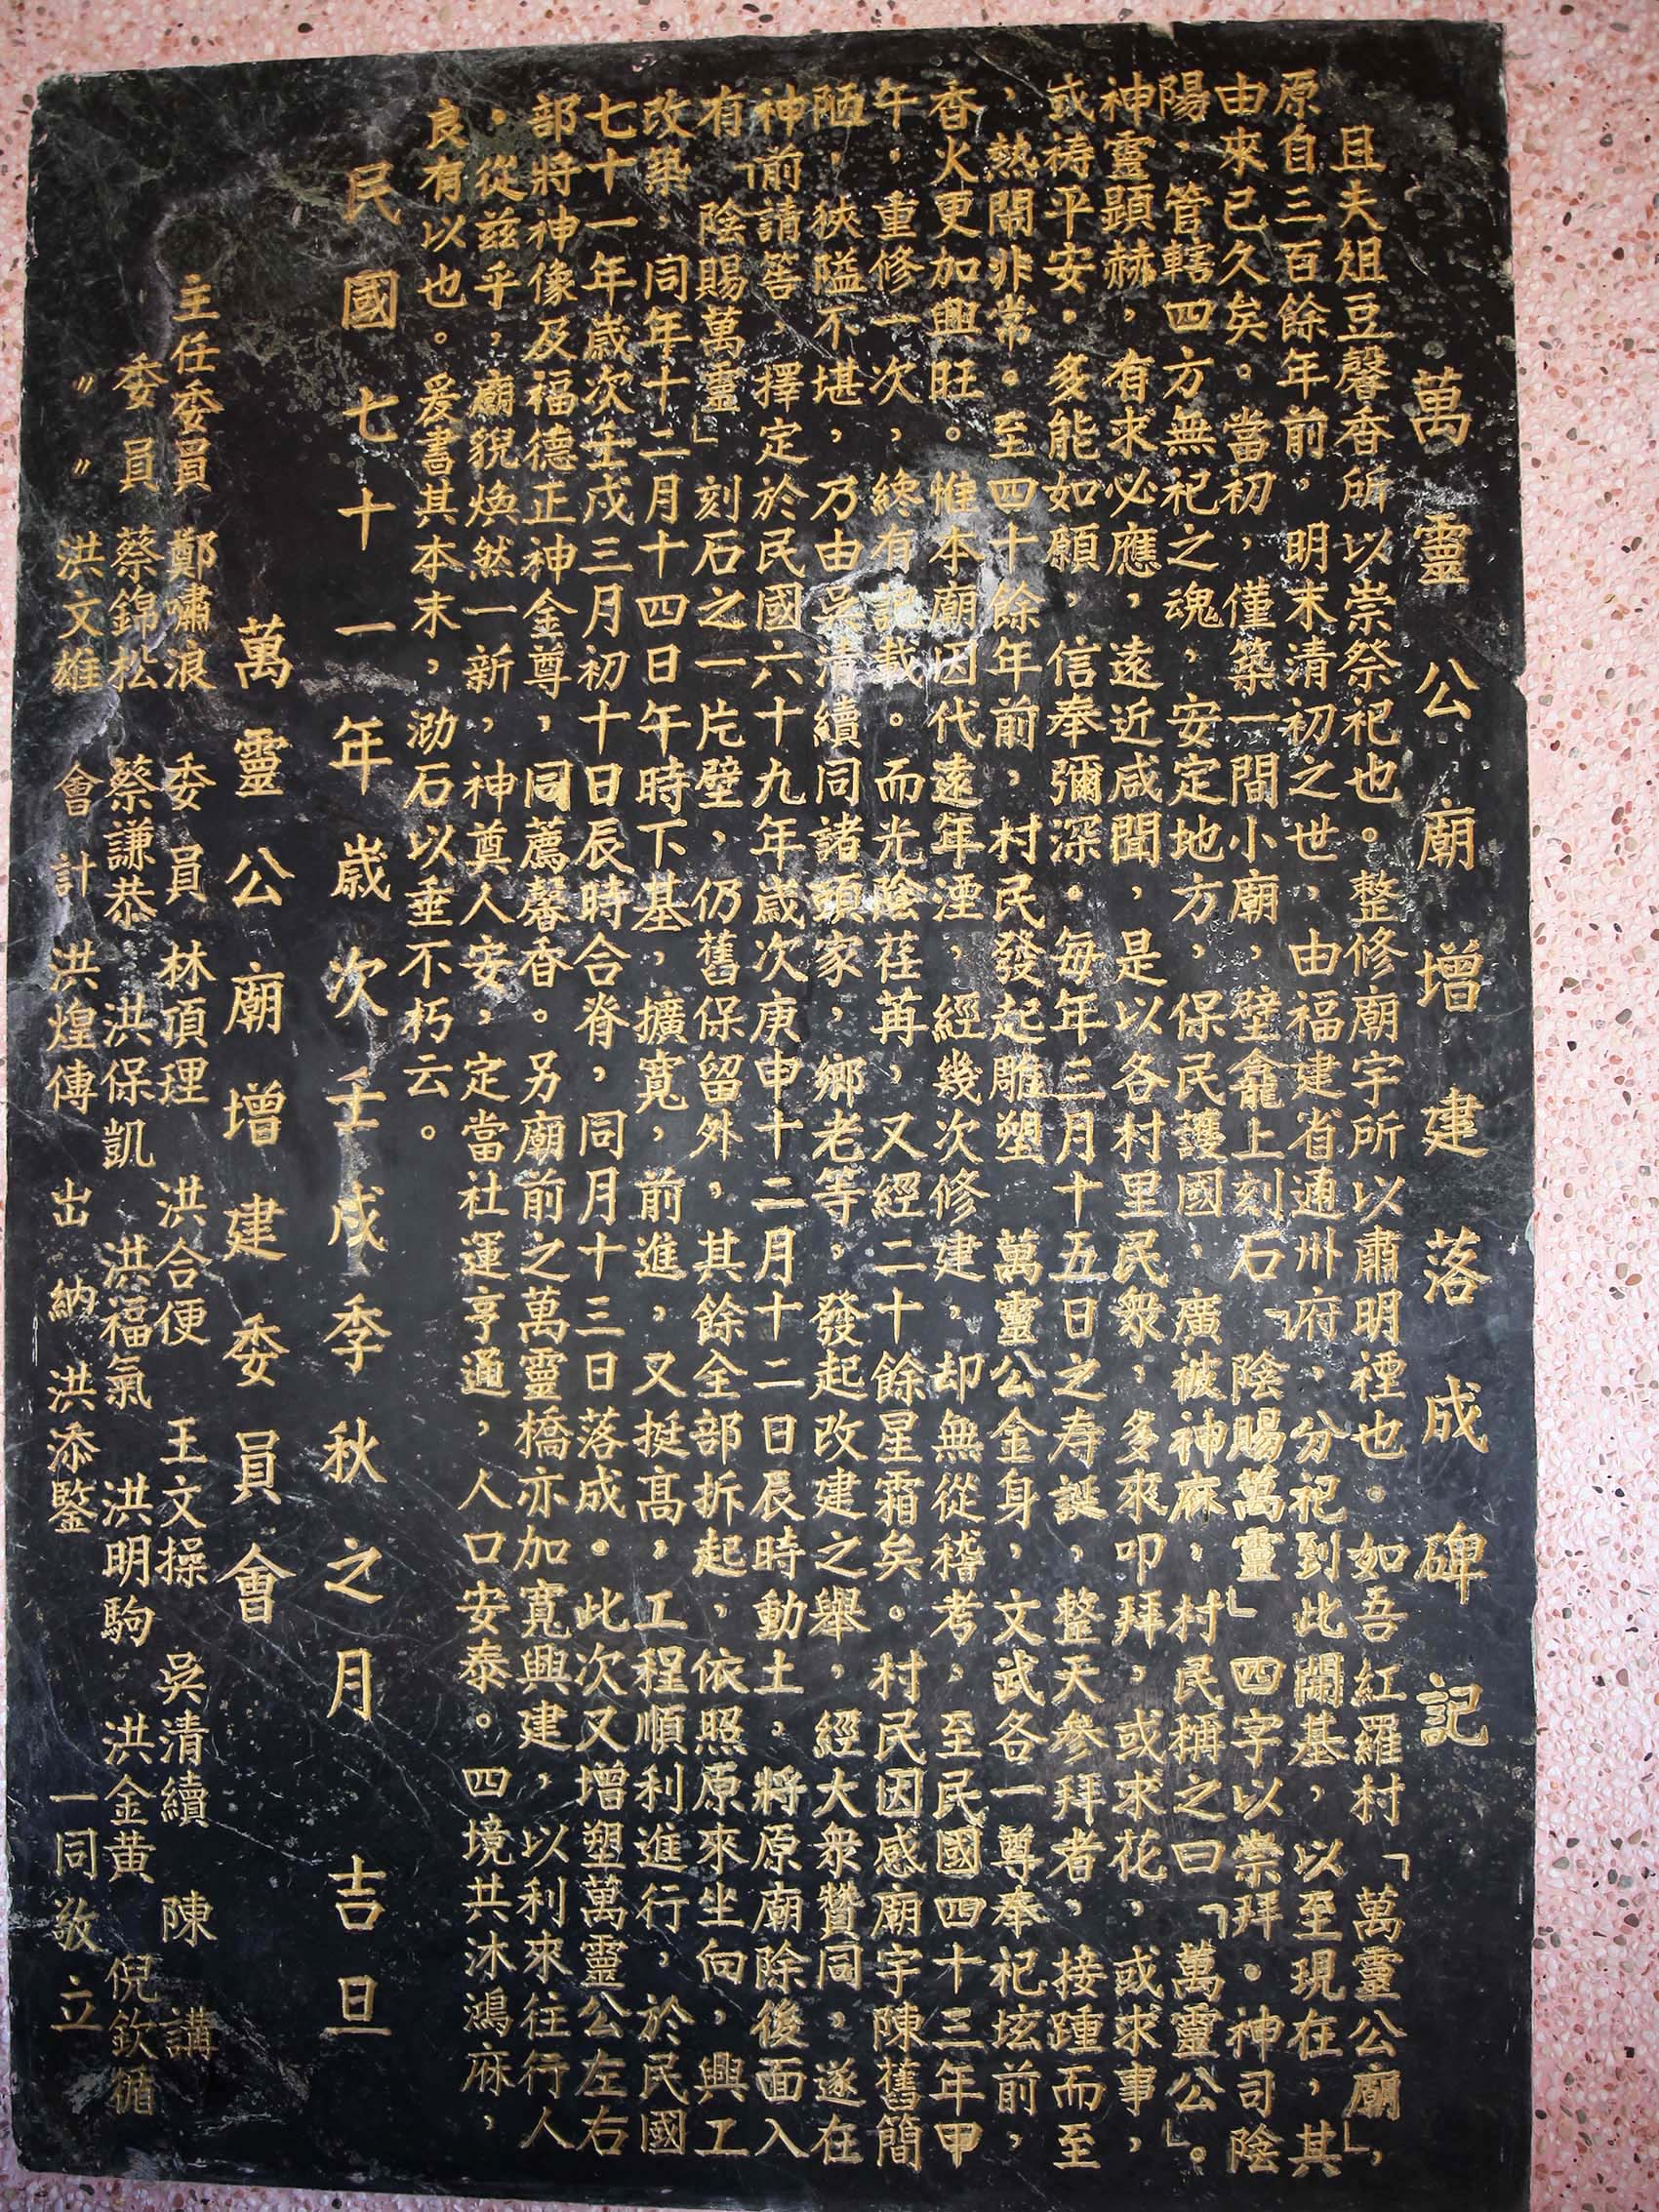 萬靈公廟增建落成碑記
且夫俎豆馨香所以崇祭祀也。整修廟宇所以肅明禋也。如吾紅羅村「萬靈公廟」，
原自三百餘年前，明末清初之世，由福建省通卅府，分祀到此開基，以至現在，其
由來已久矣。當初，僅築一間小廟，壁龕上刻石「陰賜萬靈」四字以崇拜。神司陰
陽，管轄四方無祀之魂，安定地方，保民護國，廣被神庥，村民稱之曰「萬靈公」。
神靈顕赫，有求必應，遠近咸聞，是以各村里民衆，多來叩拜，或求花，或求事，
或祷平安，多能如願，信奉彌深。每年三月十五日之寿誕，整天參拜者，接踵而至
，熱鬧非常。至四十餘年前，村民發起雕塑萬靈公金身，文武各一尊奉祀垓前，
香火更加興旺。惟本廟因代遠年湮，經幾次修建，却無從稽考，至民國四十三年甲
午，重修一次，終有記載。而光陰荏苒，又經二十餘星霜矣。村民因感廟宇陳舊簡
陋，狹隘不堪，乃由吳清續同諸頭家，鄉老等，發起改建之舉，經大衆贊同，遂在
神前請筶，擇定於民國六十九年歲次庚申十二月十二日辰時動土，將原廟除後面入
有「陰賜萬靈」刻石之一片壁，仍舊保留外，其餘全部拆起，依照原來坐向，興工
改築，同年十二月十四日午時下基，擴寬，前進，又挺高，工程順利進行，於民國
七十一年歲次壬戌三月初十日辰時合脊，同月十三日落成。此次又增塑萬靈公左右
部將神像及福德正神金尊，同薦馨香。另廟前之萬靈橋亦加寬興建，以利來往行人
，從茲乎，廟貌煥然一新，神奠人安，定當社運亨通，人口安泰。四境共沐鴻庥，
良有以也。爰書其本末，泐石以垂不朽云。
民國七十一年歲次壬戌季秋之月吉旦
萬靈公廟增建委員會
主任委員 鄭嘯浪 委員 林頂理 洪合便 王文操 吳清續 陳講
委員 蔡錦松 蔡謙恭 洪保凱 洪福氣 洪明駒 洪金黃 倪欽循
〃 〃 洪文雄 會計 洪煌傳 出納 洪添鋻 一同敬立